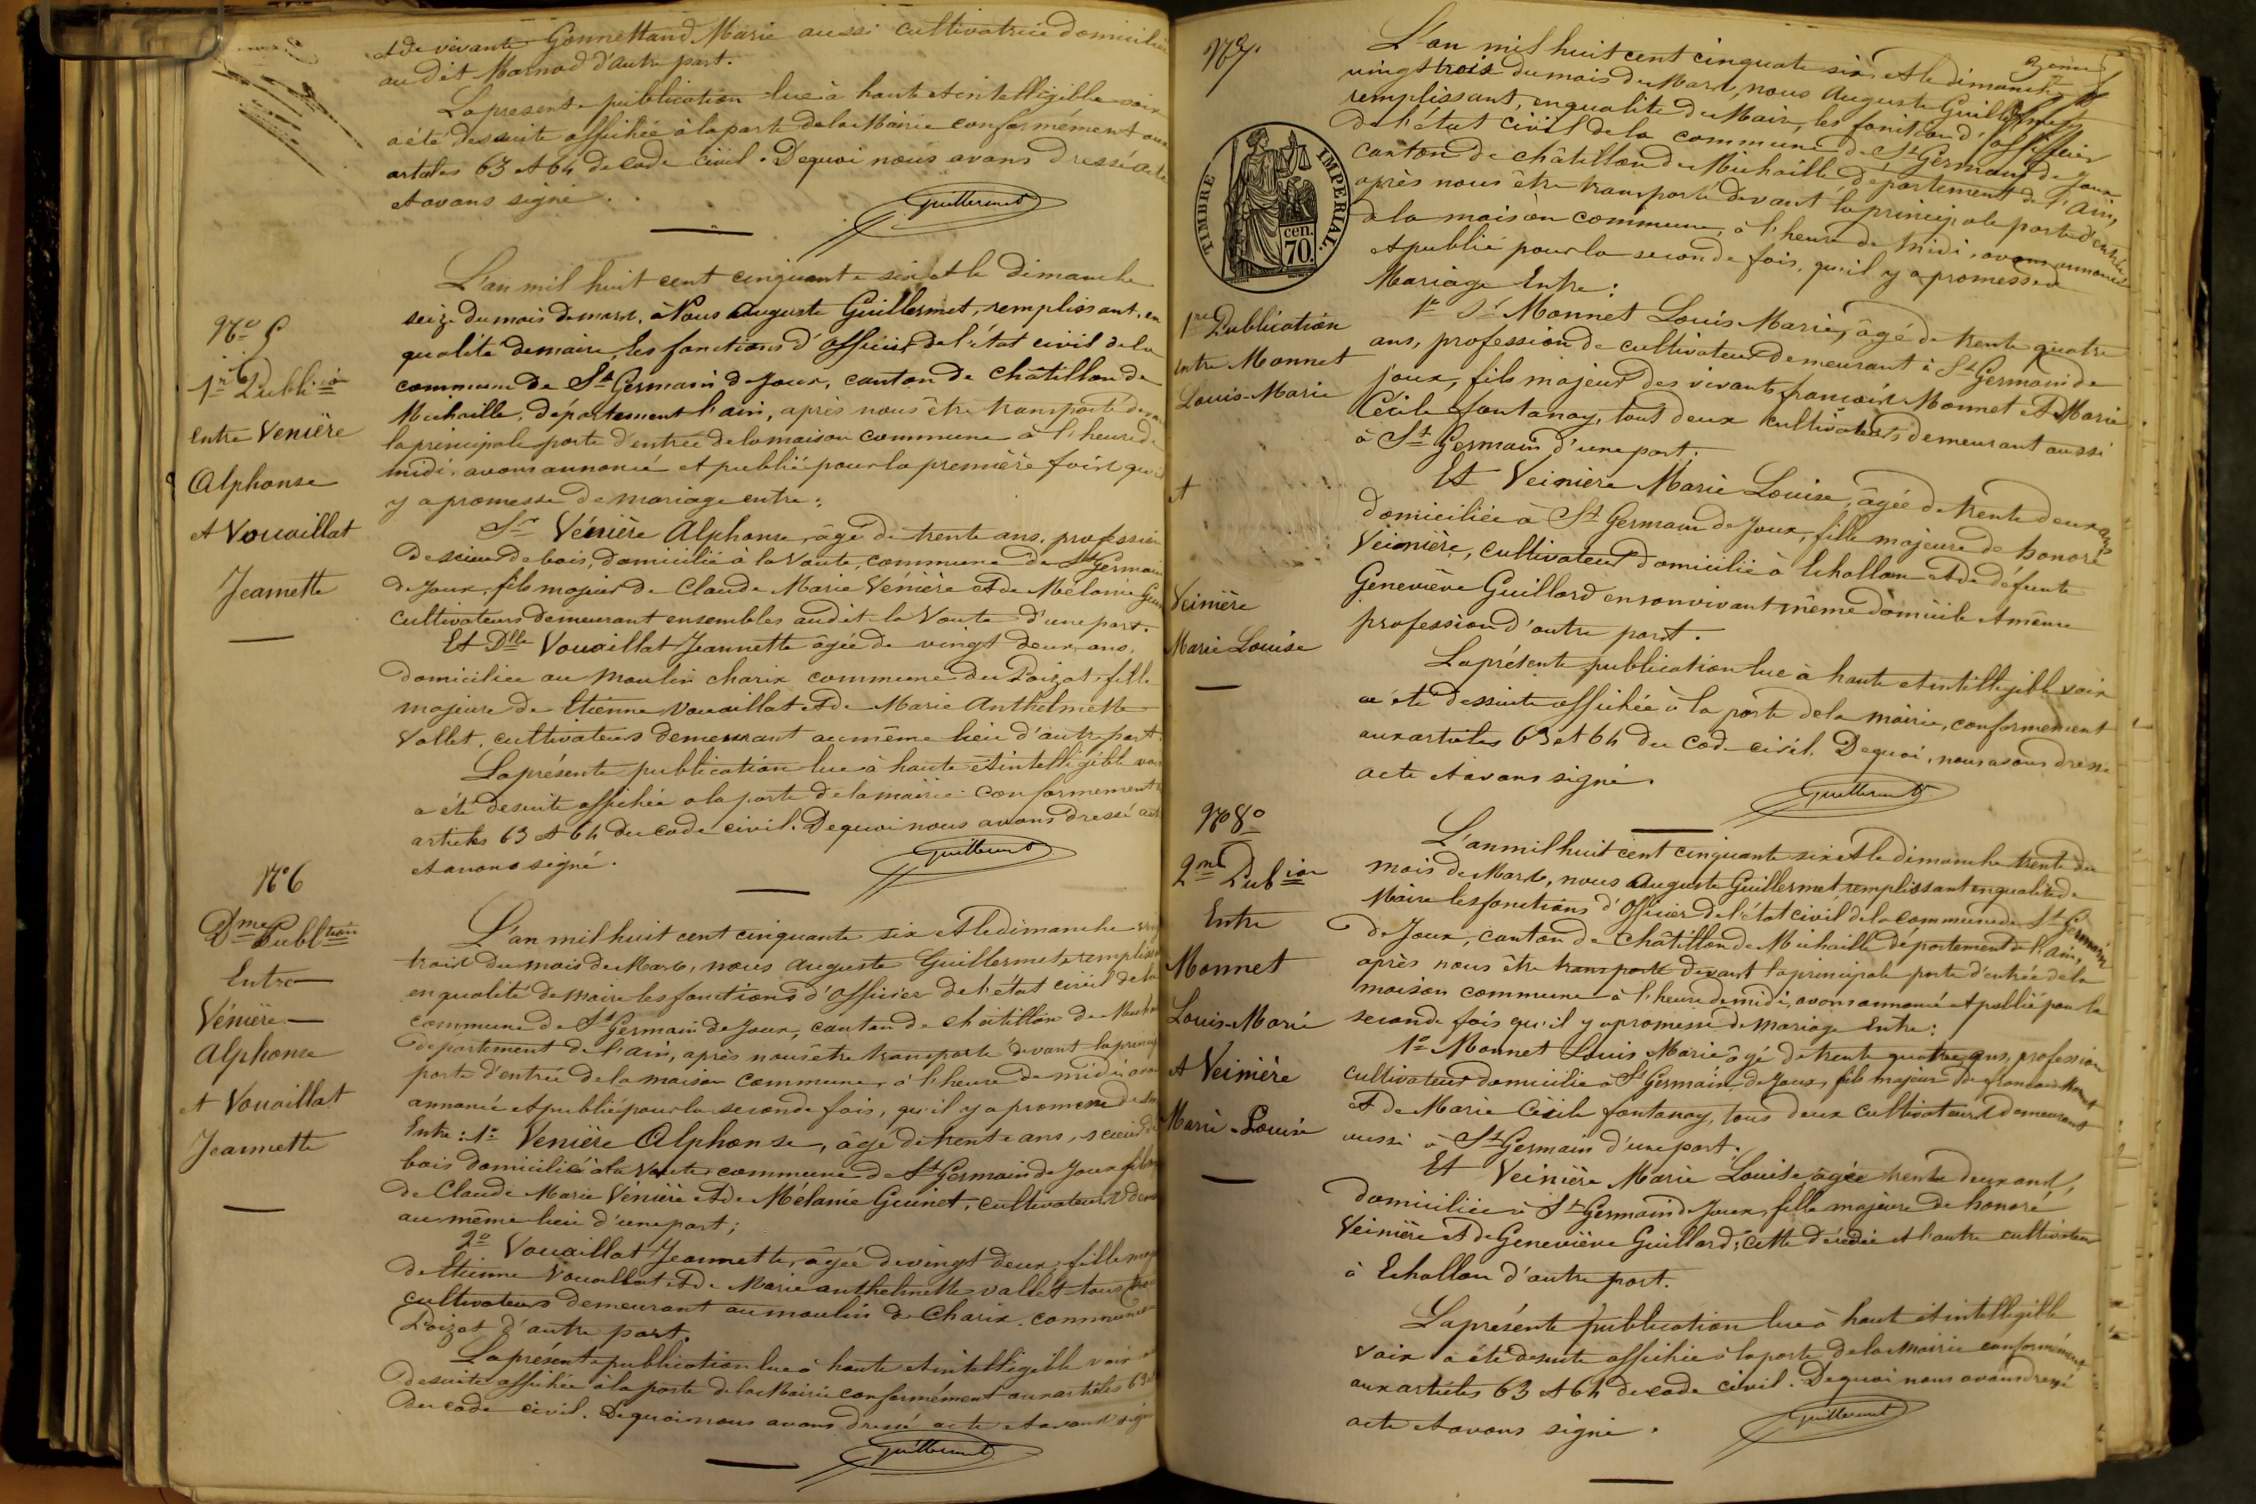 et de vivante Gonnettand Marie aussi cultivatrice domiciliée
au dit Marnod d'autre part.
La présente publication lue à haute et intelligible voix
a été de suite affichée à la porte de la Mairie conformément aux
articles 63 et 64 de code civil. De quoi nous avons dressé acte
et avons signé.
Guillermet
N° 5
1re Publion
entre Venière
Alphonse
et Vouaillat
Jeannette
L'an mil huit cent cinquante six et le dimanche
seize du mois de mars, à Nous Auguste Guillermet, remplissant, en
qualité de maire, les fonctions d'officier de l'état civil de la
commune de St Germain de Joux, canton de Châtillon de
Michaille, département l'ain, après nous être transporté devant
la principale porte d'entrée de la maison commune à l'heure de
midi, avons annoncé et publié pour la première fois qu'il
y a promesse de mariage entre :
Sr Vénière Alphonse, âgé de trente ans, profession
de scieur de bois, domicilié à la Voute, commune de St Germain
de Joux, fils majeur de Claude Marie Vénière et de Mélanie
cultivateurs demeurant ensembles audit la Voute d'une part.
Et Dlle Vouaillat Jeannette âgée de vingt deux ans,
domiciliée au Moulin charix commune du Poizat, fille
majeure de Etienne Vouaillat et de Marie Anthelmette
Vallet, cultivateurs demeurant au même lieu d'autre part.
La présente publication lue à haute et intelligible voix
a été de suite affichée à la porte de la mairie conformement
articles 63 et 64 du code civil. De quoi nous avons dressé acte
et avons signé.
Guillermet
N° 6
Dme Publtion
Entre
Vénière
Alphonse
et Vouaillat
Jeannette
L'an mil huit cent cinquante six et le dimanche vingt
trois du mois de Mars, nous Auguste Guillermet remplissant
en qualité de maire les fonctions d'officier de l'état civil de la
commune de St Germain de Joux, canton de châtillon de Michaille
département de l'ain, après nous être transporté devant la principale
porte d'entrée de la maison commune, à l'heure de midi, avons
annoncé et publié pour la seconde fois, qu'il y a promesse de
Entre : 1° Venière Alphonse, âgé de trente ans, scieur de
bois domicilié à la Voute commune de St Germain de Joux fils
de Claude Marie Vénière et de Mélanie Guinet, cultivateurs
au même lieu d'une part ;
2° Vouaillat Jeannette, âgée de vingt deux, fille
de Etienne Vouaillat et de Marie anthelmette vallet tous
cultivateurs demeurant au moulin de Charix commune
Poizat d'autre part.
La présente publication lue à haute et intelligible voix a
de suite affichée à la porte de la Mairie conformément aux articles 63
du code civil. De quoi nous avons dressé acte et avons signé
Guillermet
N° 7
TIMBRE IMPÉRIAL.
cen.
70.
1re Publication
entre Monnet
Louis-Marie
et
Veinière
Marie Louise
L'an mil huit cent cinquate six et le dimanche
vingt trois du mois de Mars, nous Auguste Guillermet
remplissant, en qualité de Maire, les fonition d'officier
de l'état civil de la commune de St Germain de Joux
canton de châtillon de Michaille département de l'Ain,
après nous être transporté devant la principale porte d'entrée
de la maison commune, à l'heure de midi, avons annoncé
et publié pour la seconde fois, qu'il y a promesse de
Mariage Entre :
1° Sr Monnet Louis Marie, âgé de trente quatre
ans, profession de cultivateur demeurant à St Germain de
joux, fils majeur des vivants françois Monnet et Marie
Cécile fontanay, tout deux cultivateurs demeurant aussi
à St Germain d'une part.
Et Veinière Marie Louise, âgée de trente deux ans
domiciliée à St Germain de Joux, fille majeure de honoré
Veinière, cultivateur domicilié à Echallon et de défunte
Geneviève Guillard en son vivant même domicile et même
profession d'autre part.
La présente publication lue à haute et intelligible voix
a été de suite affichée à la porte de la mairie, conformement
aux articles 63 et 64 du code civil. De quoi, nous avons dressé
acte et avons signé.
Guillermet
N° 8
2me Pubion
Entre
Monnet
Louis-Marie
et Veinière
Marie-Louise
L'an mil huit cent cinquante six et le dimanche trente du
mois de Mars, nous Auguste Guillermet remplissant en qualité de
Maire les fonctions d'Officier de l'état civil de la commune de St Germain
de Joux, canton de châtillon de Michaille département de l'Ain,
après nous être transporté devant la principale porte d'entrée de la
maison commune à l'heure de midi, avons annoncé et publié pour la
seconde fois qu'il y a promesse de mariage Entre :
1° Monnet Louis Marie âgé de trente quatre ans, profession
cultivateur domicilié à St Germain de Joux, fils majeur de francois Monnet
et de Marie Cécile fontanay, tous deux cultivateurs demeurant
aussi à St Germain d'une part.
Et Veinière Marie Louise âgée trente deux ans,
domiciliée à St Germain de Joux, fille majeure de honoré
Veinière et de Geneviève Guillard, cette décédée et l'autre cultivateur
à Echallon d'autre part.
La présente publication lue à haut et intelligible
voix a été de suite affichée à la porte de la Mairie conformément
aux articles 63 et 64 de code civil. De quoi nous avons dressé
acte et avons signé.
Guillermet